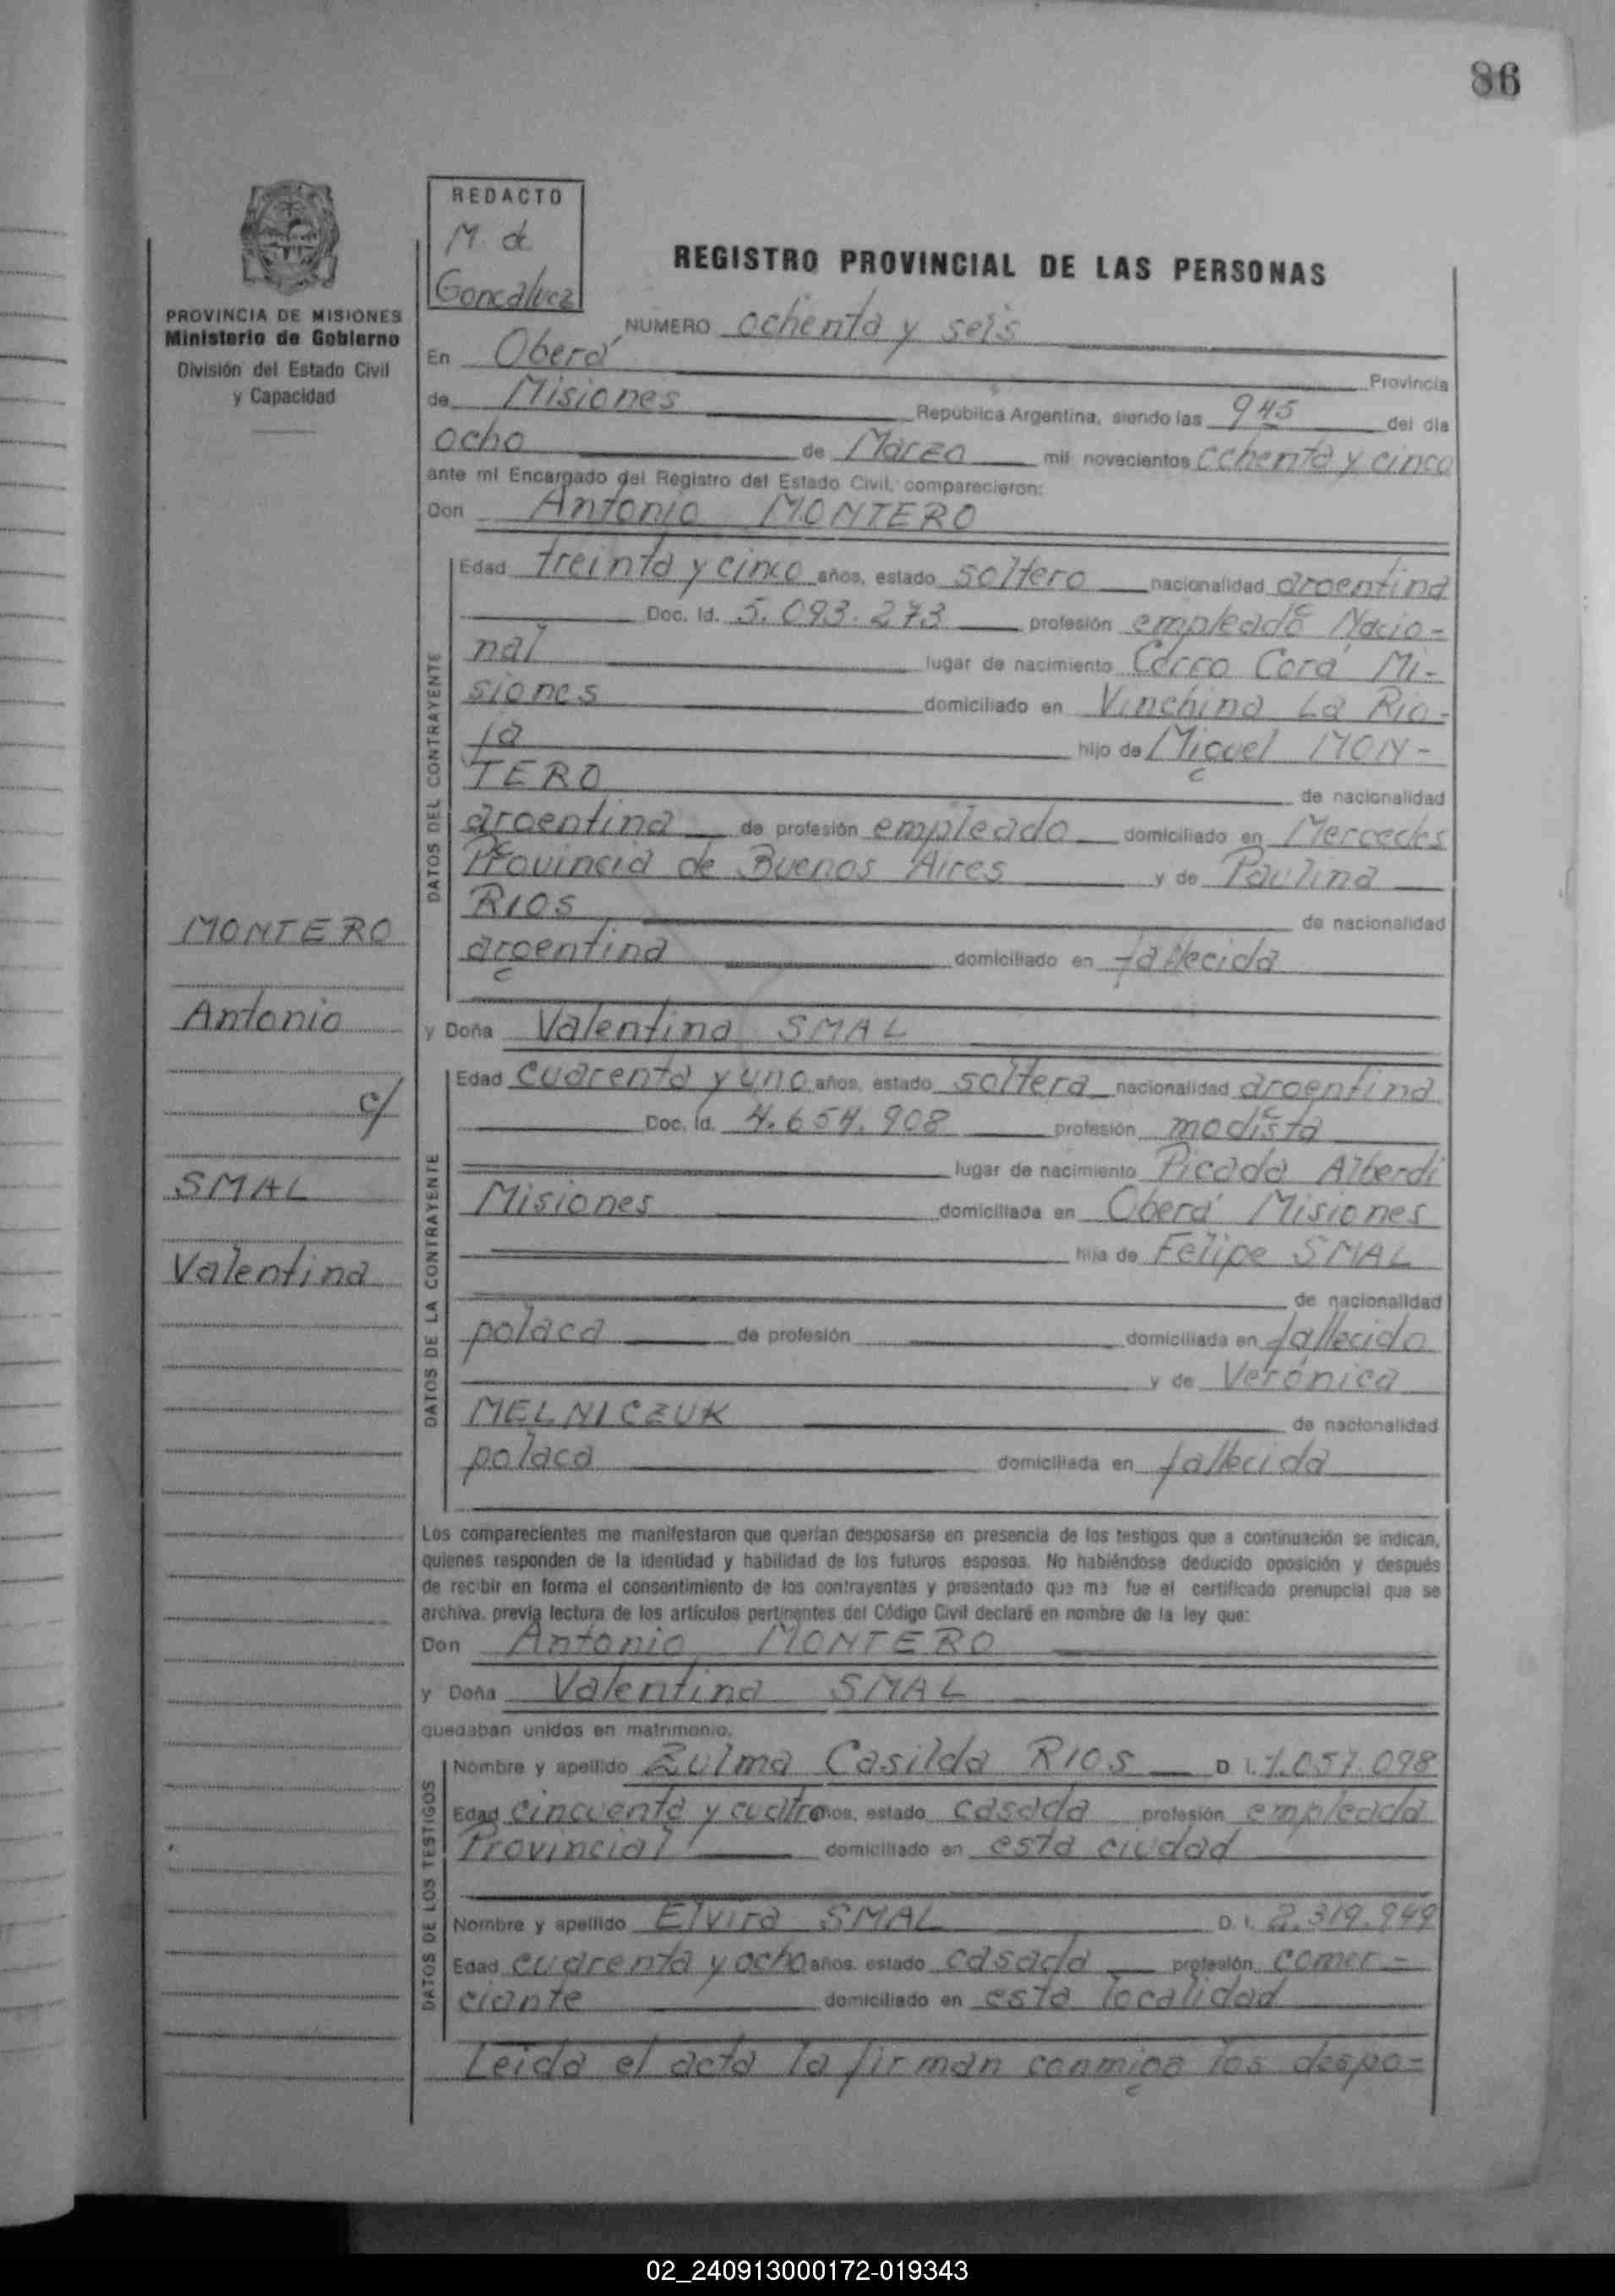 86
REDACTO
M. de
Goncalvez
REGISTRO PROVINCIAL DE LAS PERSONAS
PROVINCIA DE MISIONES
Ministerio de Gobierno
División del Estado Civil
y Capacidad
NUMERO ochenta y seis
En Oberá Provincia
de Misiones República Argentina, siendo las 945 del día
ocho de Marzo mil novecientos ochenta y cinco
ante mí Encargado del Registro del Estado Civil, comparecieron:
Don Antonio MONTERO
DATOS DEL CONTRAYENTE
Edad treinta y cinco años, estado soltero nacionalidad argentina
Doc. Id. 5.093.273 profesión empleado Nacio-
nal lugar de nacimiento Cerro Corá Mi-
siones domiciliado en Vinchina La Rio-
ja hijo de Miguel MON-
TERO de nacionalidad
argentina de profesión empleado domiciliado en Mercedes
Provincia de Buenos Aires y de Paulina
RIOS de nacionalidad
argentina domiciliado en fallecida
MONTERO
Antonio
c/
SMAL
Valentina
y Doña Valentina SMAL
DATOS DE LA CONTRAYENTE
Edad cuarenta y uno años, estado soltera nacionalidad argentina
Doc. Id. 4.654.908 profesión modista
lugar de nacimiento Picada Alberdi
Misiones domiciliada en Oberá Misiones
hija de Felipe SMAL
de nacionalidad
polaca de profesión domiciliada en fallecido
y de Verónica
MELNICZUK de nacionalidad
polaca domiciliada en fallecida
Los comparecientes me manifestaron que querían desposarse en presencia de los testigos que a continuación se indican,
quienes responden de la identidad y habilidad de los futuros esposos. No habiéndose deducido oposición y después
de recibir en forma el consentimiento de los contrayentes y presentado que me fue el certificado prenupcial que se
archiva, previa lectura de los artículos pertinentes del Código Civil declaré en nombre de la ley que:
Don Antonio MONTERO
y Doña Valentina SMAL
quedaban unidos en matrimonio.
DATOS DE LOS TESTIGOS
Nombre y apellido Zulma Casilda RIOS D. I. 1.057.098
Edad cincuenta y cuatro años, estado casada profesión empleada
Provincial domiciliado en esta ciudad
Nombre y apellido Elvira SMAL D. I. 2.319.949
Edad cuarenta y ocho años, estado casada profesión comer-
ciante domiciliado en esta localidad
Leida el acta la firman conmigo los despo-
02_240913000172-019343